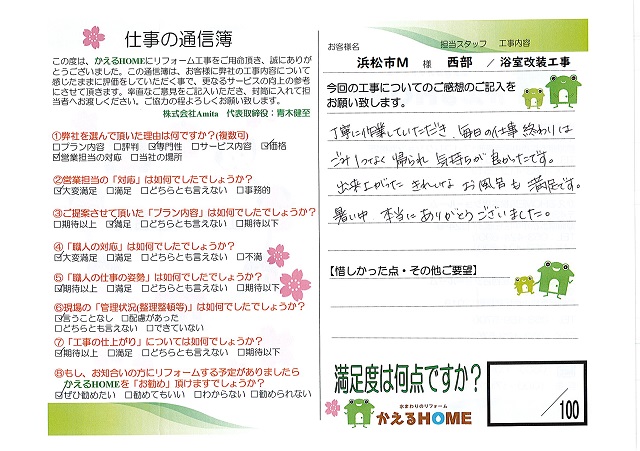 仕事の通信簿
この度は、かえるHOMEにリフォーム工事をご用命頂き、誠にありが
とうございました。この通信簿は、お客様に弊社の工事内容について
感じたままに評価をしていただく事で、更なるサービスの向上の参考
にさせて頂きます。率直なご意見をご記入いただき、封筒に入れて担
当者へお渡しください。ご協力の程よろしくお願い致します。
株式会社Amita 代表取締役：青木健至
①弊社を選んで頂いた理由は何ですか？(複数可)
□プラン内容 □評判 ☑専門性 □サービス内容 ☑価格
☑営業担当の対応 □当社の場所
②営業担当の「対応」は如何でしたでしょうか？
☑大変満足 □満足 □どちらとも言えない □事務的
③ご提案させて頂いた「プラン内容」は如何でしたでしょうか？
□期待以上 ☑満足 □どちらとも言えない □期待以下
④「職人の対応」は如何でしたでしょうか？
☑大変満足 □満足 □どちらとも言えない □不満
⑤「職人の仕事の姿勢」は如何でしたでしょうか？
☑期待以上 □満足 □どちらとも言えない □期待以下
⑥現場の「管理状況(整理整頓等)」は如何でしたでしょうか？
☑言うことなし □配慮があった
□どちらとも言えない □できていない
⑦「工事の仕上がり」については如何でしたでしょうか？
☑期待以上 □満足 □どちらとも言えない □期待以下
⑧もし、お知合いの方にリフォームする予定がありましたら
かえるHOMEを「お勧め」頂けますでしょうか？
☑ぜひ勧めたい □勧めてもいい □わからない □勧められない
お客様名 担当スタッフ 工事内容
浜松市M 様 西部 / 浴室改装工事
今回の工事についてのご感想のご記入を
お願い致します。
丁寧に作業していただき 毎日の仕事終わりは
ゴミ1つなく帰られ 気持ちが良かったです。
出来上がった きれいな お風呂も 満足です。
暑い中 本当に ありがとうございました。
【惜しかった点・その他ご要望】
満足度は何点ですか？
/100
水まわりのリフォーム
かえるHOME